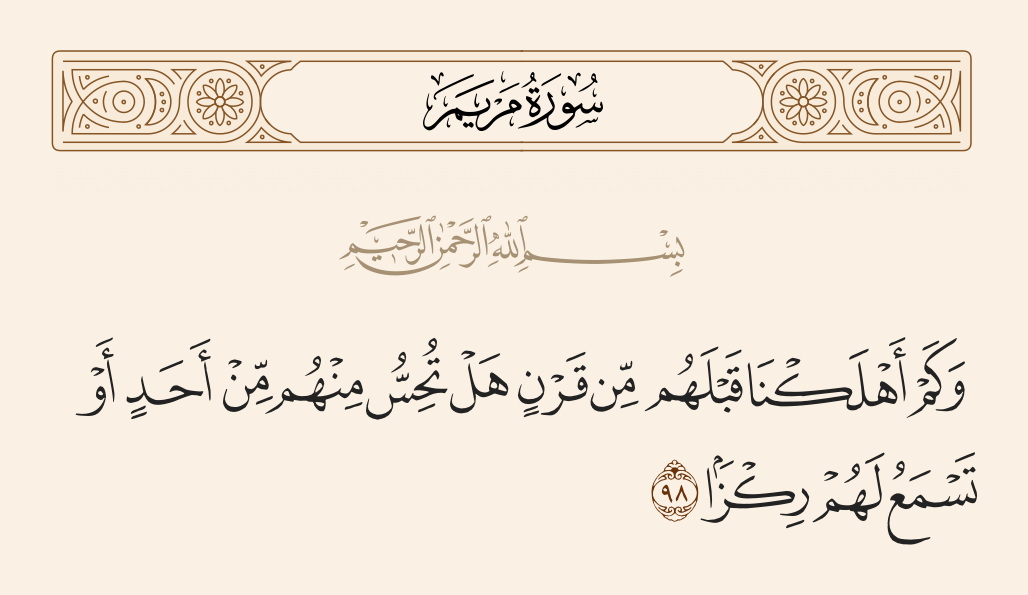 سُورَةُ مَرْيَمَ
بِسْمِ ٱللَّهِ ٱلرَّحْمَٰنِ ٱلرَّحِيمِ
وَكَمْ أَهْلَكْنَا قَبْلَهُم مِّن قَرْنٍ هَلْ تُحِسُّ مِنْهُم مِّنْ أَحَدٍ أَوْ
تَسْمَعُ لَهُمْ رِكْزًۢا ٩٨